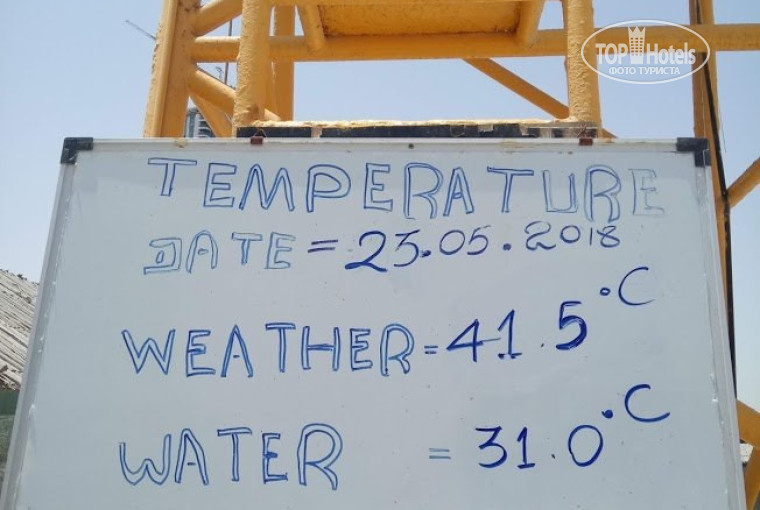 TOP Hotels
ФОТО ТУРИСТА
TEMPERATURE
DATE = 23.05.2018
WEATHER = 41.5°C
WATER = 31.0°C